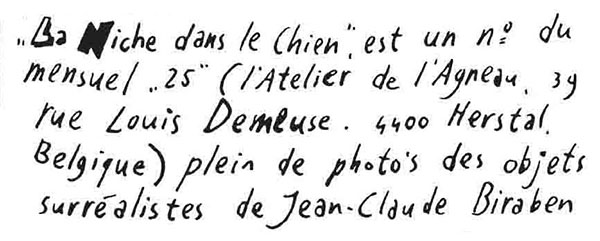 „La Niche dans le Chien", est un nº du
mensuel „25" (l'Atelier de l'Agneau, 39
rue Louis Demeuse. 4400 Herstal,
Belgique) plein de photo's des objets
surréalistes de Jean-Claude Biraben